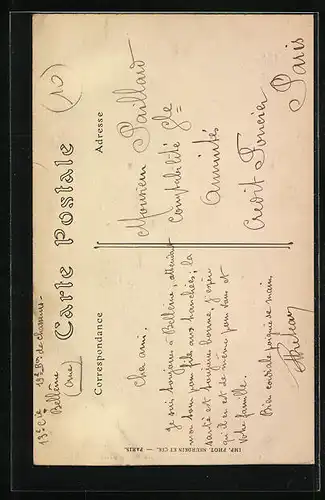 13e Cie 19e Bon de chasseurs -
Bellême
(Orne)
Carte Postale
(10)
Correspondance
Adresse
Cher ami.
Je suis toujours à Bellême, attendant
mon tour pour filer aux tranchées ; la
santé est toujours bonne, j'espère
qu'il en est de même pour vous et
votre famille.
Bien cordiale poignée de main.
Monsieur Paillard
Comptabilité Gle
Annuités
Crédit Foncier
Paris
IMP. PHOT. NEURDEIN ET CIE. — PARIS.